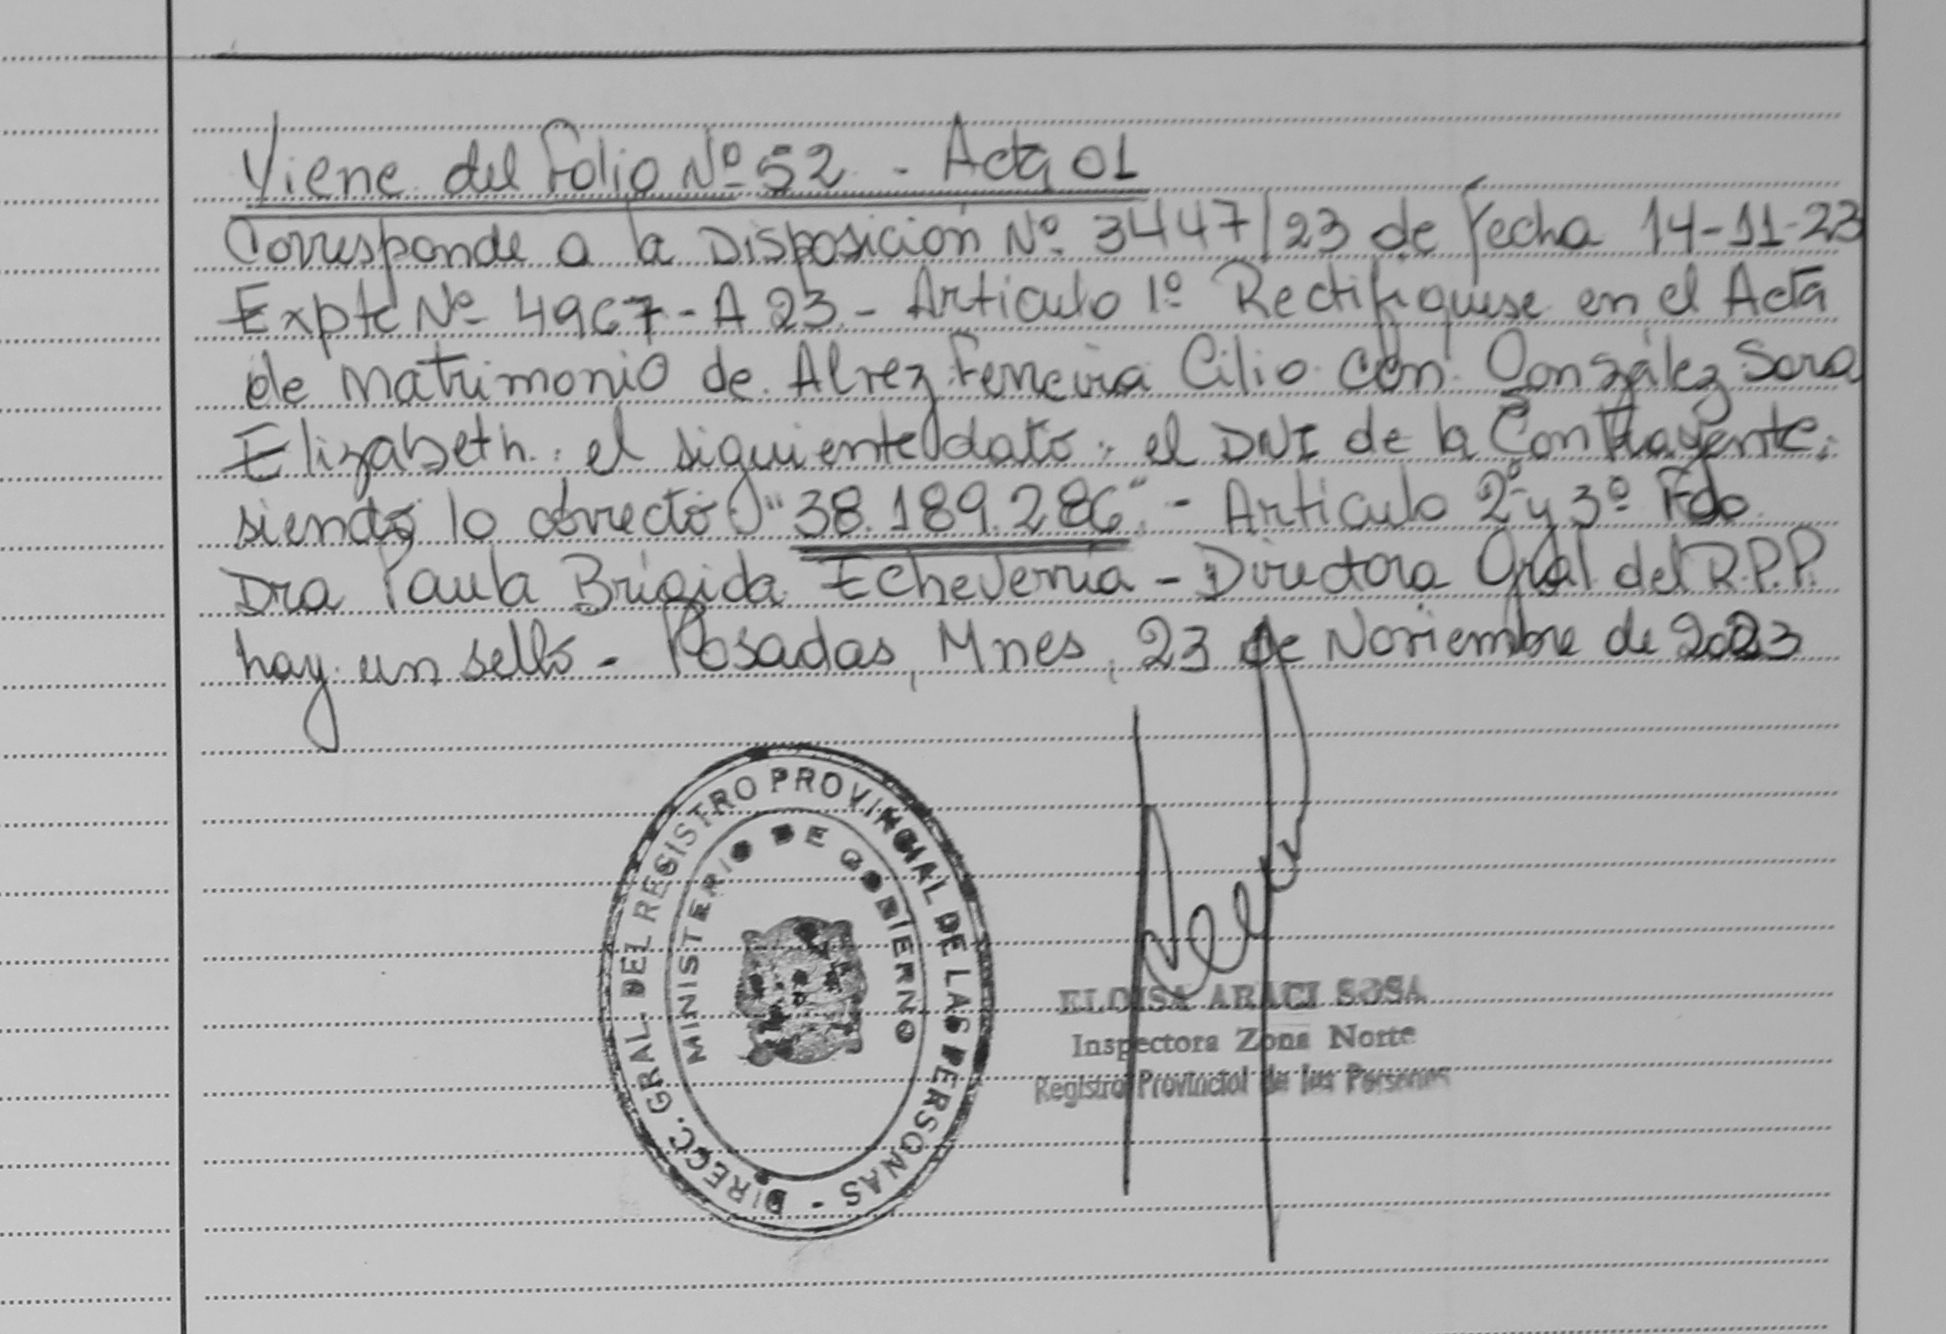 Viene del Folio Nº 52 - Acta 01
Corresponde a la Disposición Nº 3447/23 de fecha 14-11-23
Expte Nº 4967-A 23 - Articulo 1º Rectifiquese en el Acta
de Matrimonio de Alvez Ferreira Cilio con González Sara
Elizabeth: el siguiente dato: el DNI de la Contrayente:
siendo lo correcto "38.189.286" - Articulo 2º y 3º Fdo
Dra Paula Brigida Echeverria - Directora Gral del R.P.P.
hay un sello - Posadas, Mnes, 23 de Noviembre de 2023
DIRECC. GRAL. DEL REGISTRO PROVINCIAL DE LAS PERSONAS -
MINISTERIO DE GOBIERNO
ELOISA ARACI SOSA
Inspectora Zona Norte
Registro Provincial de las Personas